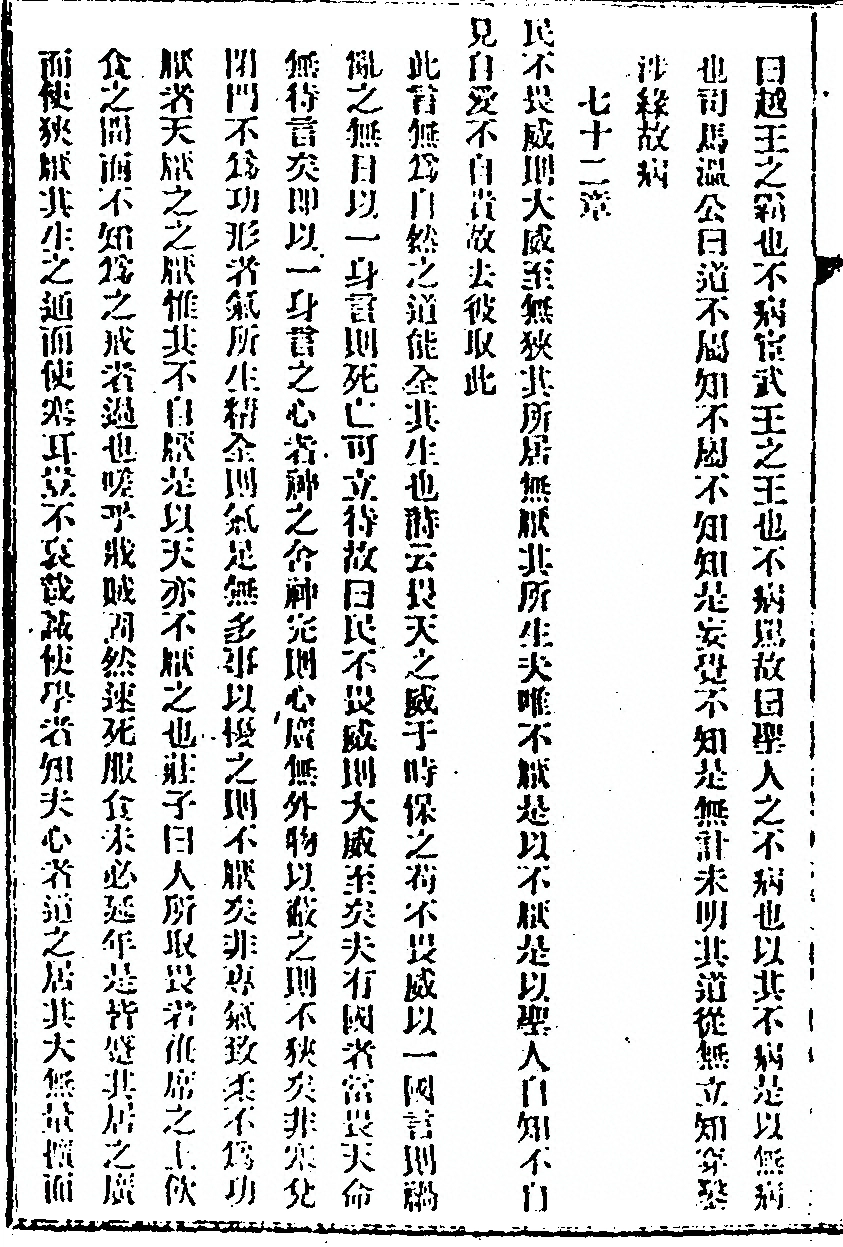 曰越王之霸也不病宦武王之王也不病詈故曰聖人之不病也以其不病是以無病
也司馬溫公曰道不屬知不屬不知知是妄覺不知是無計未明其道從無立知穿鑿
涉緣故病
七十二章
民不畏威則大威至無狹其所居無厭其所生夫唯不厭是以不厭是以聖人自知不自
見自愛不自貴故去彼取此
此言無爲自然之道能全其生也詩云畏天之威于時保之苟不畏威以一國言則禍
亂之無日以一身言則死亡可立待故曰民不畏威則大威至矣夫有國者當畏天命
無待言矣即以一身言之心者神之舍神完則心廣無外物以蔽之則不狹矣非塞兌
閉門不爲功形者氣所生精全則氣足無多事以擾之則不厭矣非專氣致柔不爲功
厭者天厭之之厭惟其不自厭是以天亦不厭之也莊子曰人所取畏者衽席之上飲
食之間而不知爲之戒者過也嗟乎戕賊固然速死服食未必延年是皆蹙其居之廣
而使狹厭其生之通而使塞耳豈不哀哉誠使學者知夫心者道之居其大無量擴而